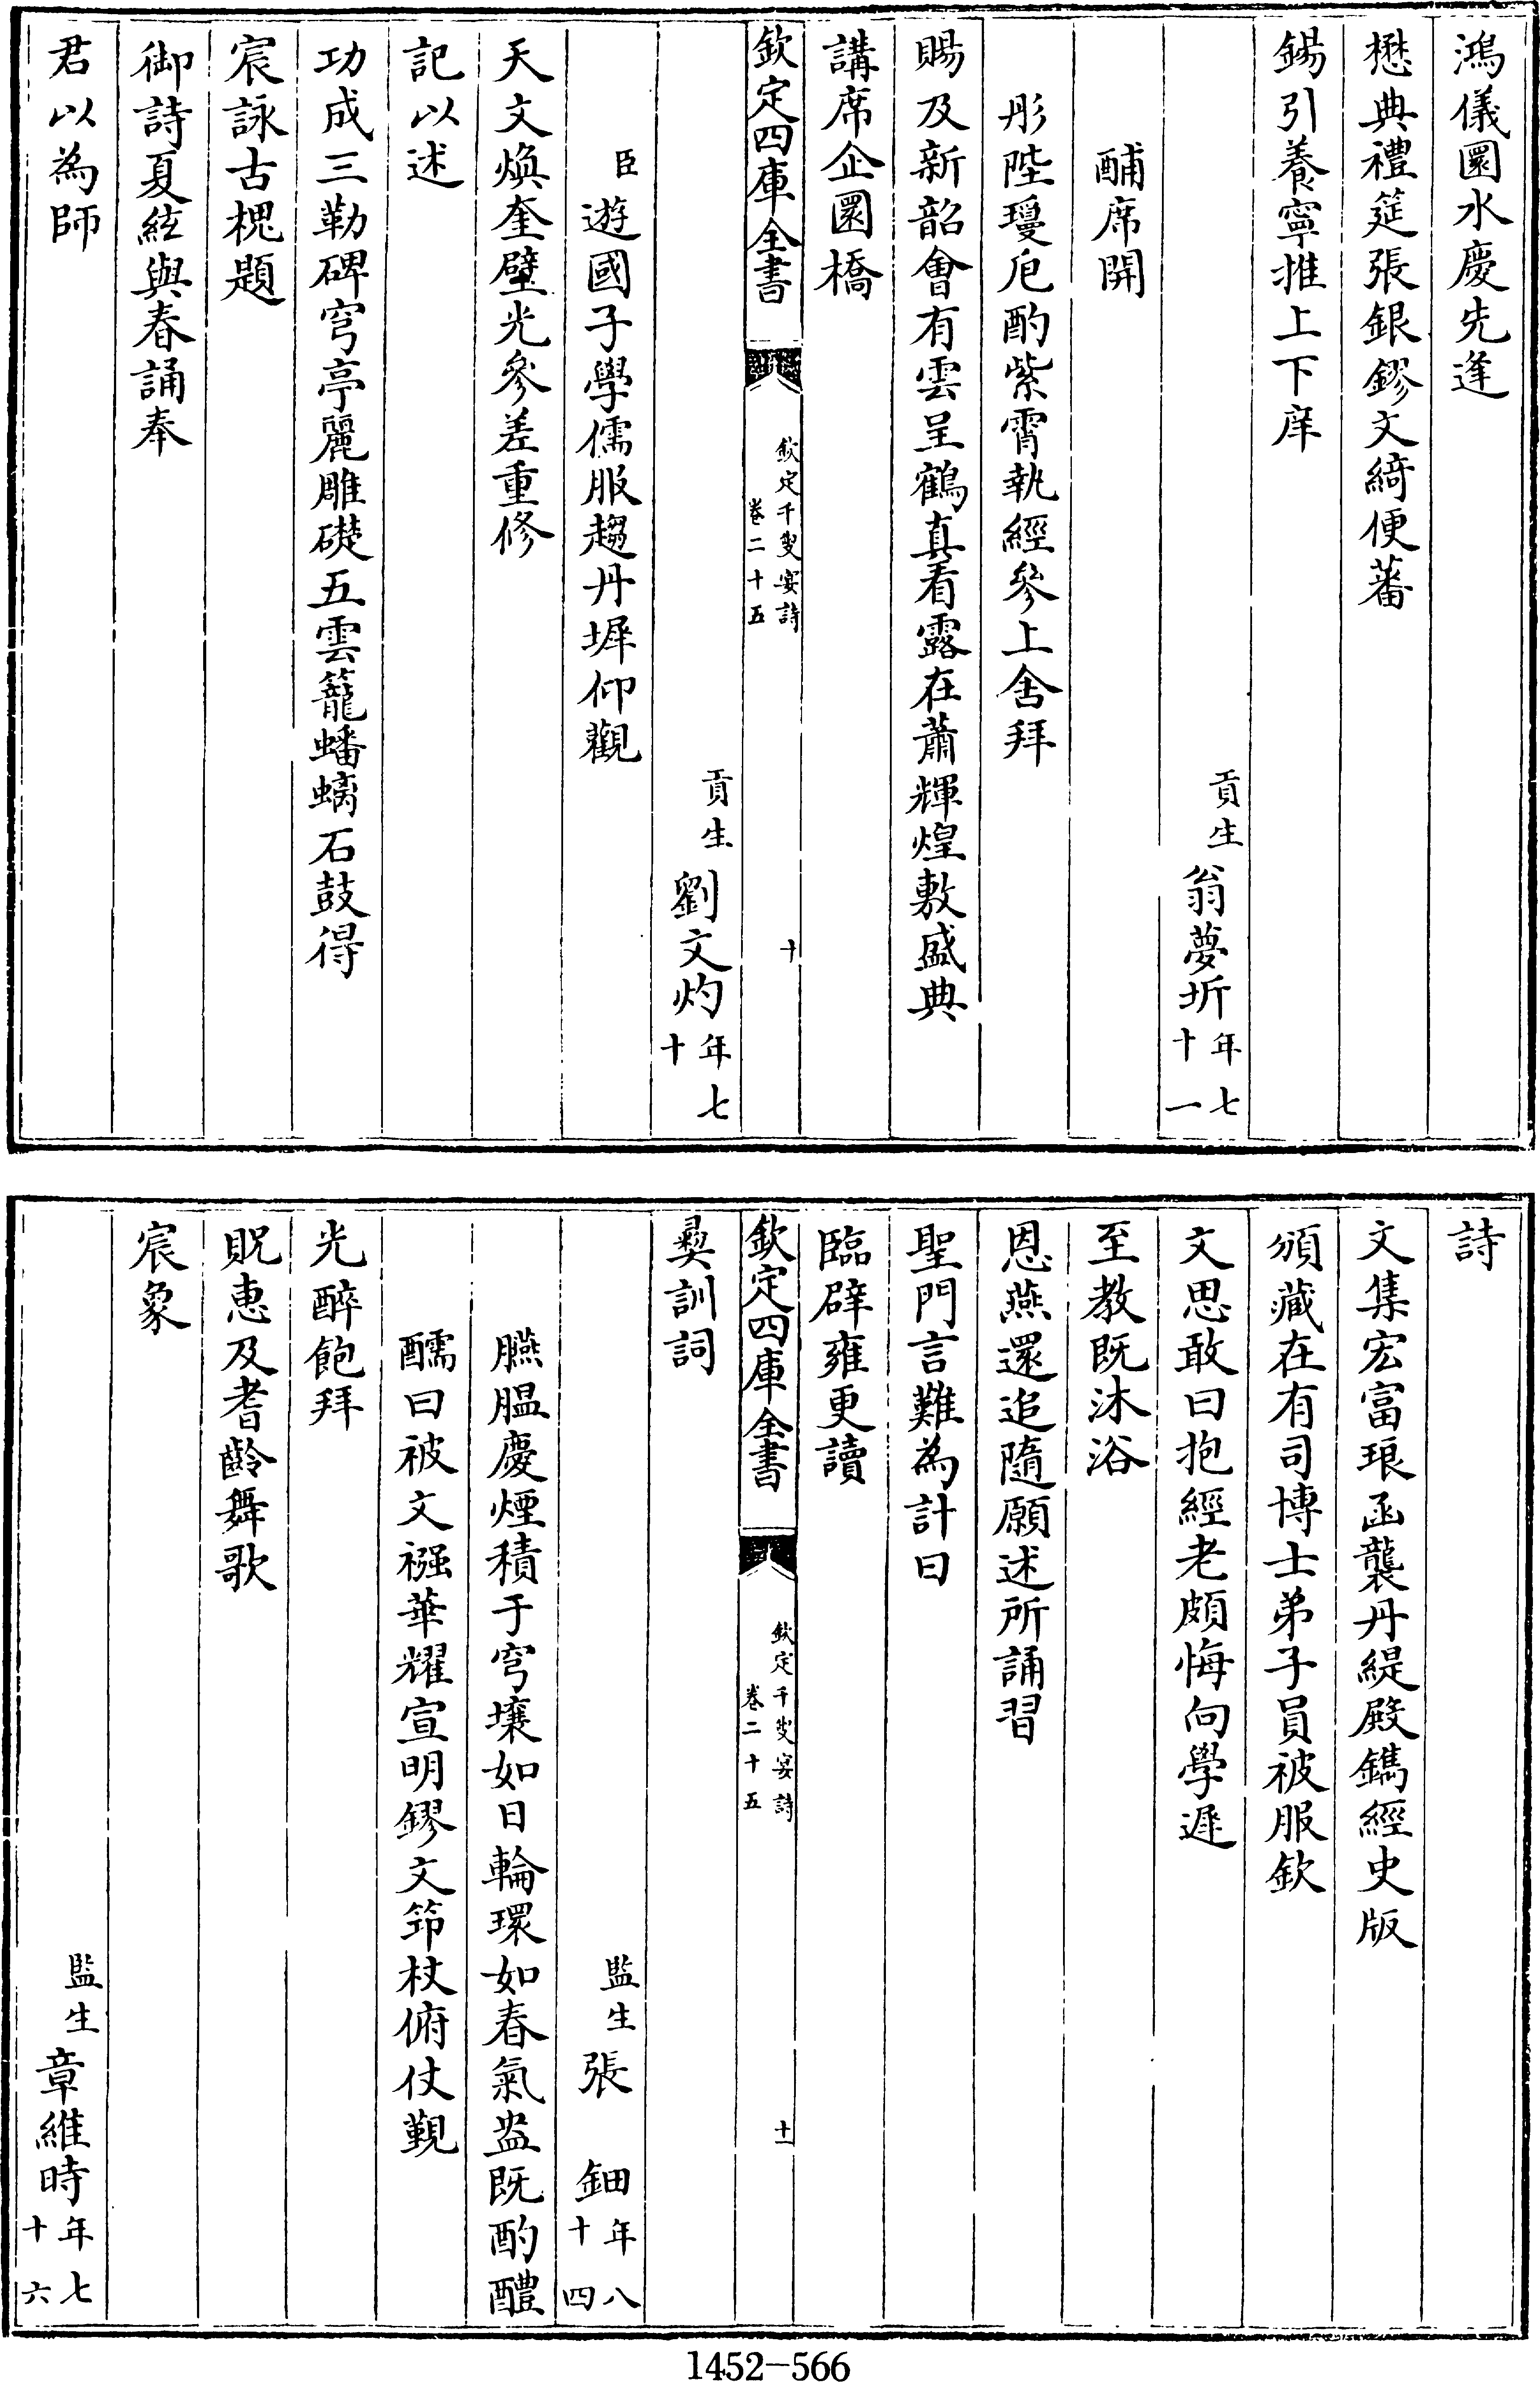 鴻儀圜水慶先逢
懋典禮筵張銀鏐文綺便蕃
錫引養寧推上下庠
貢生翁夢圻年七十一
酺席開
彤陛瓊卮酌紫霄執經參上舍拜
賜及新韶會有雲呈鶴真看露在蕭輝煌敷盛典
講席企圜橋
欽定四庫全書
欽定千叟宴詩
卷二十五
十
貢生劉文灼年七十
臣遊國子學儒服趨丹墀仰觀
天文煥奎壁光參差重修
記以述
功成三勒碑穹亭麗雕礎五雲籠蟠螭石鼓得
宸詠古槐題
御詩夏絃與春誦奉
君以為師
詩
文集宏富琅函襲丹緹殿鐫經史版
頒藏在有司博士弟子員被服欽
文思敢曰抱經老頗悔向學遲
至教既沐浴
恩燕還追隨願述所誦習
聖門言難為計日
臨辟雍更讀
欽定四庫全書
欽定千叟宴詩
卷二十五
十一
彝訓詞
監生張鈿年八十四
臙腽慶煙積于穹壤如日輪環如春氣盎既酌醴
醹曰被文襁華耀宣明鏐文笻杖俯仗覲
光醉飽拜
貺惠及耆齡舞歌
宸象
監生章維時年七十六
1452-566